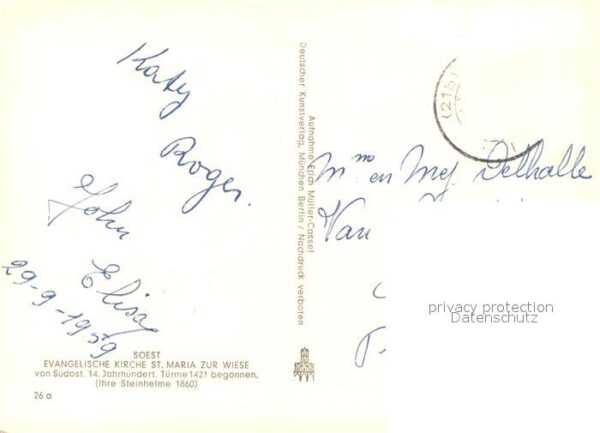 Katy
Roger.
John
Elisa
29-9-1959
SOEST
EVANGELISCHE KIRCHE ST. MARIA ZUR WIESE
von Südost. 14. Jahrhundert. Türme 1421 begonnen.
(Ihre Steinhelme 1860)
26 a
Aufnahme Erich Müller-Cassel
Deutscher Kunstverlag, München Berlin / Nachdruck verboten
(21b)
Mm en Mej Delhalle
Van
privacy protection
Datenschutz